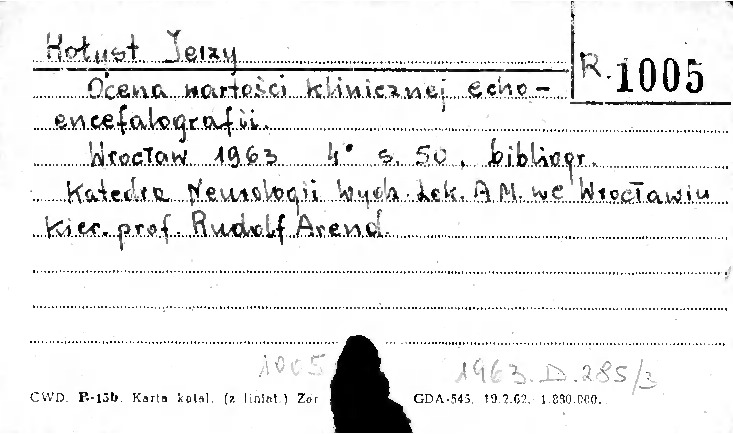 Hołust Jerzy
R. 1005
Ocena wartości klinicznej echo-
encefalografii.
Wrocław 1963 4° s. 50, bibliogr.
Katedra Neurologii Wydz. Lek. A M. we Wrocławiu
Kier. prof. Rudolf Arend.
1005
1963. D. 285/3
CWD. P.-15b. Karta katal. (z liniat.) GDA-545. 19.2.62. 1.880.000.